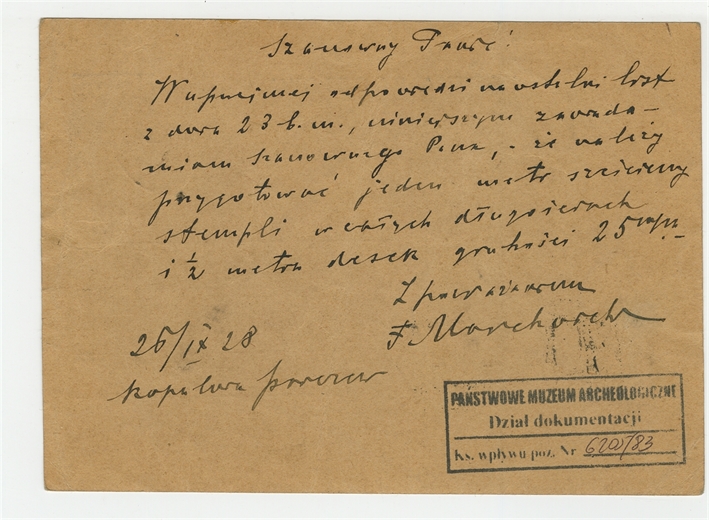 Szanowny Panie!
W uprzejmej odpowiedzi na ostatni list
z dnia 23 b.m., niniejszym zawiada-
miam Szanownego Pana, – że należy
przygotować jeden metr sześcienny
stempli w całych długościach
i ½ metra desek grubości 25 m/m
Z poważaniem
F Marchwch
26/IX 28
Kopalnia
PAŃSTWOWE MUZEUM ARCHEOLOGICZNE
Dział dokumentacji
Ks. wpływu poz. Nr 6200/83